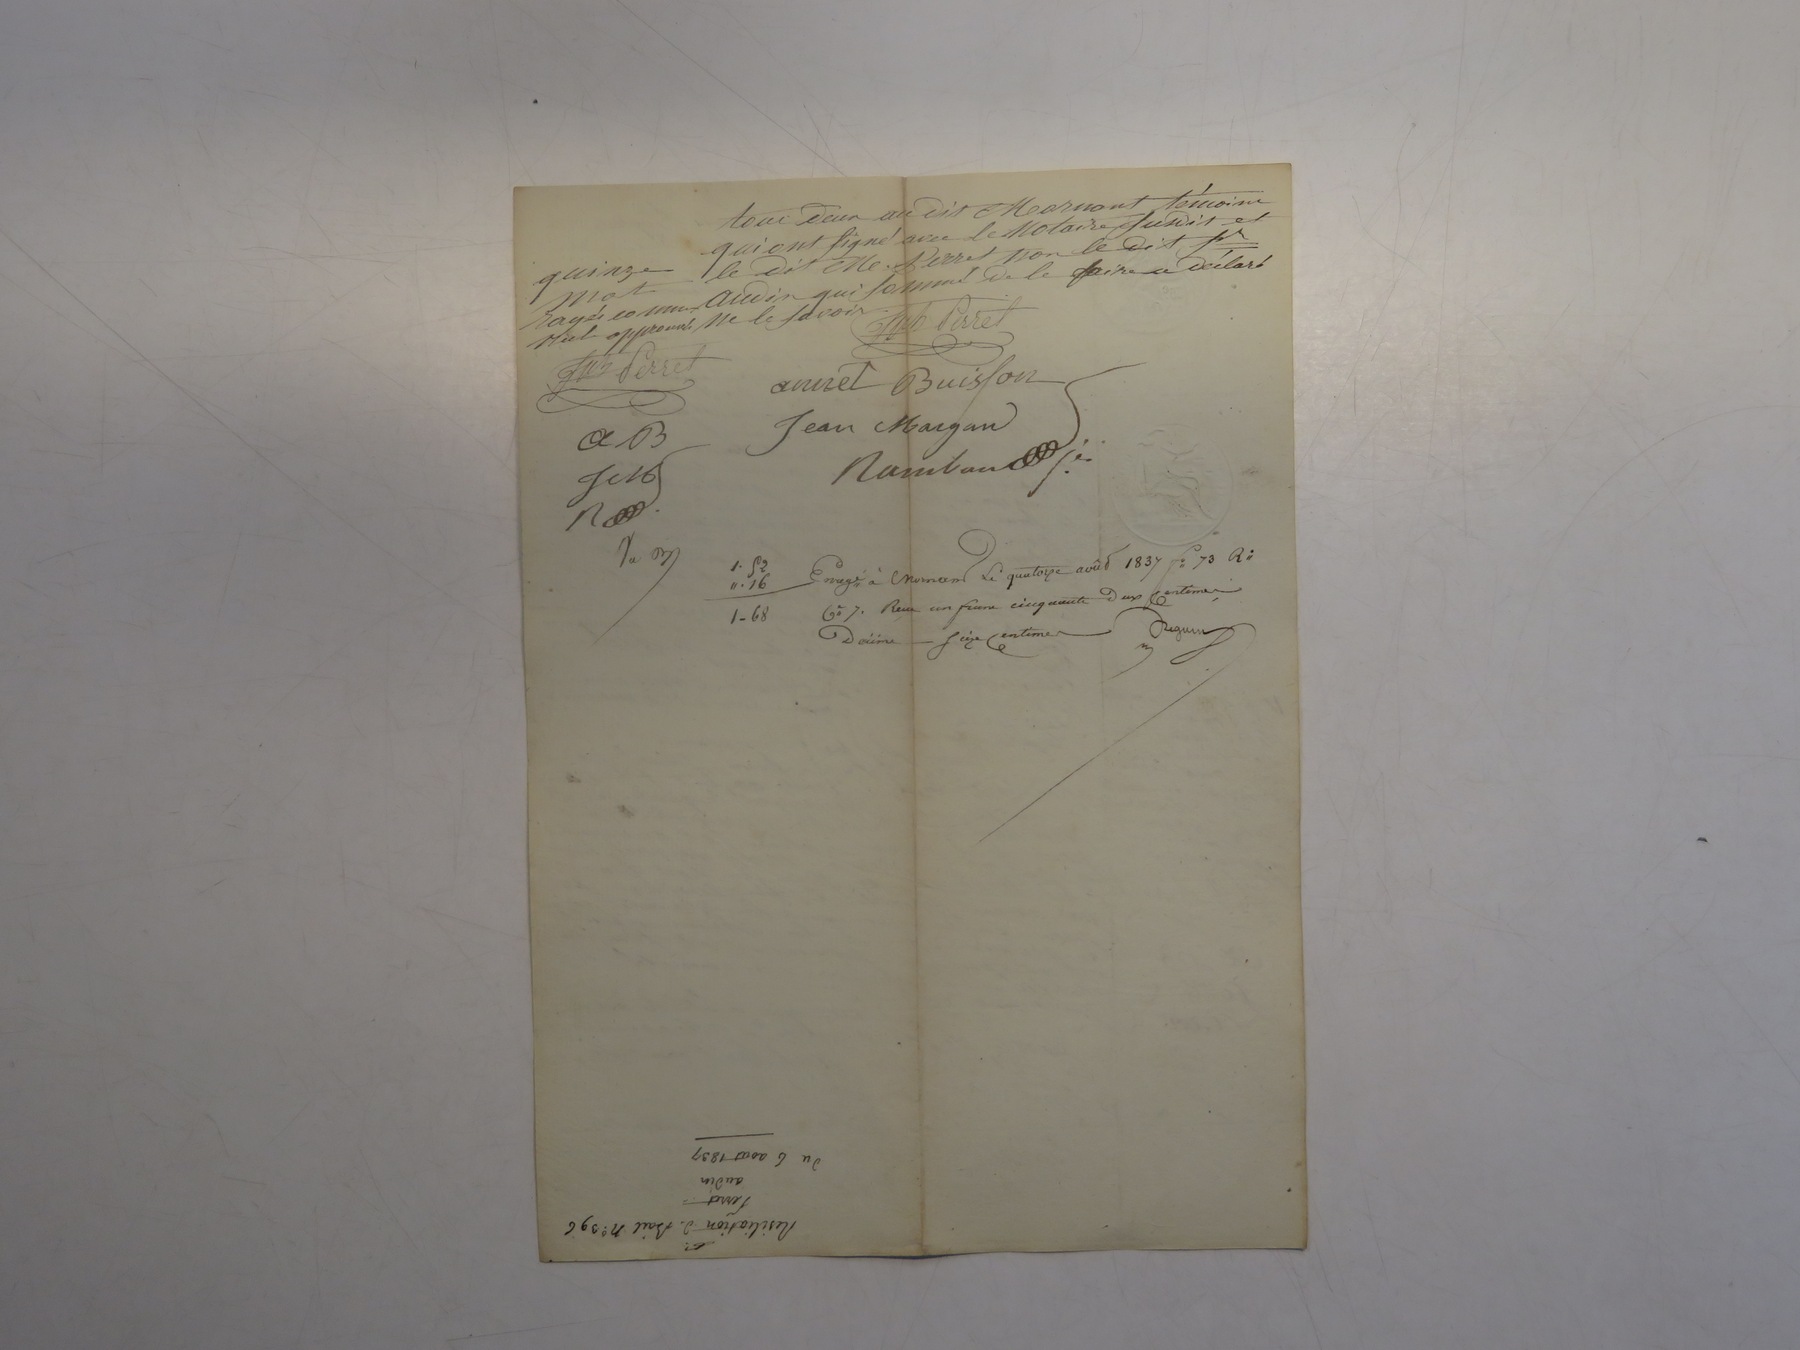 tous deux audit Mornant témoins
qui ont signé avec le Notaire susdit et
le dit Me. Perret non le dit Sr
Audin qui sommé de le faire a déclaré
ne le savoir
quinze
mot
rayés comme
nuls approuvé
Perret
Perret
annet Buisson
Jean Margan
AB
R
1.52
".16
1-68
Enregé à Mornant le quatorze août 1837 fo 73 Ro
Co 7. Reçu un franc cinquante deux centimes
Décime seize centimes
Résiliation de Bail No. 396
Perret
audin
Du 6 aoust 1837